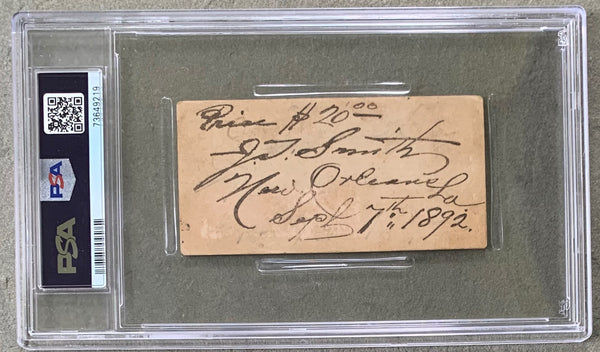 Price $20.00
J.T. Smith
New Orleans La
Sept 7th 1892.
PSA
PSA
73649219